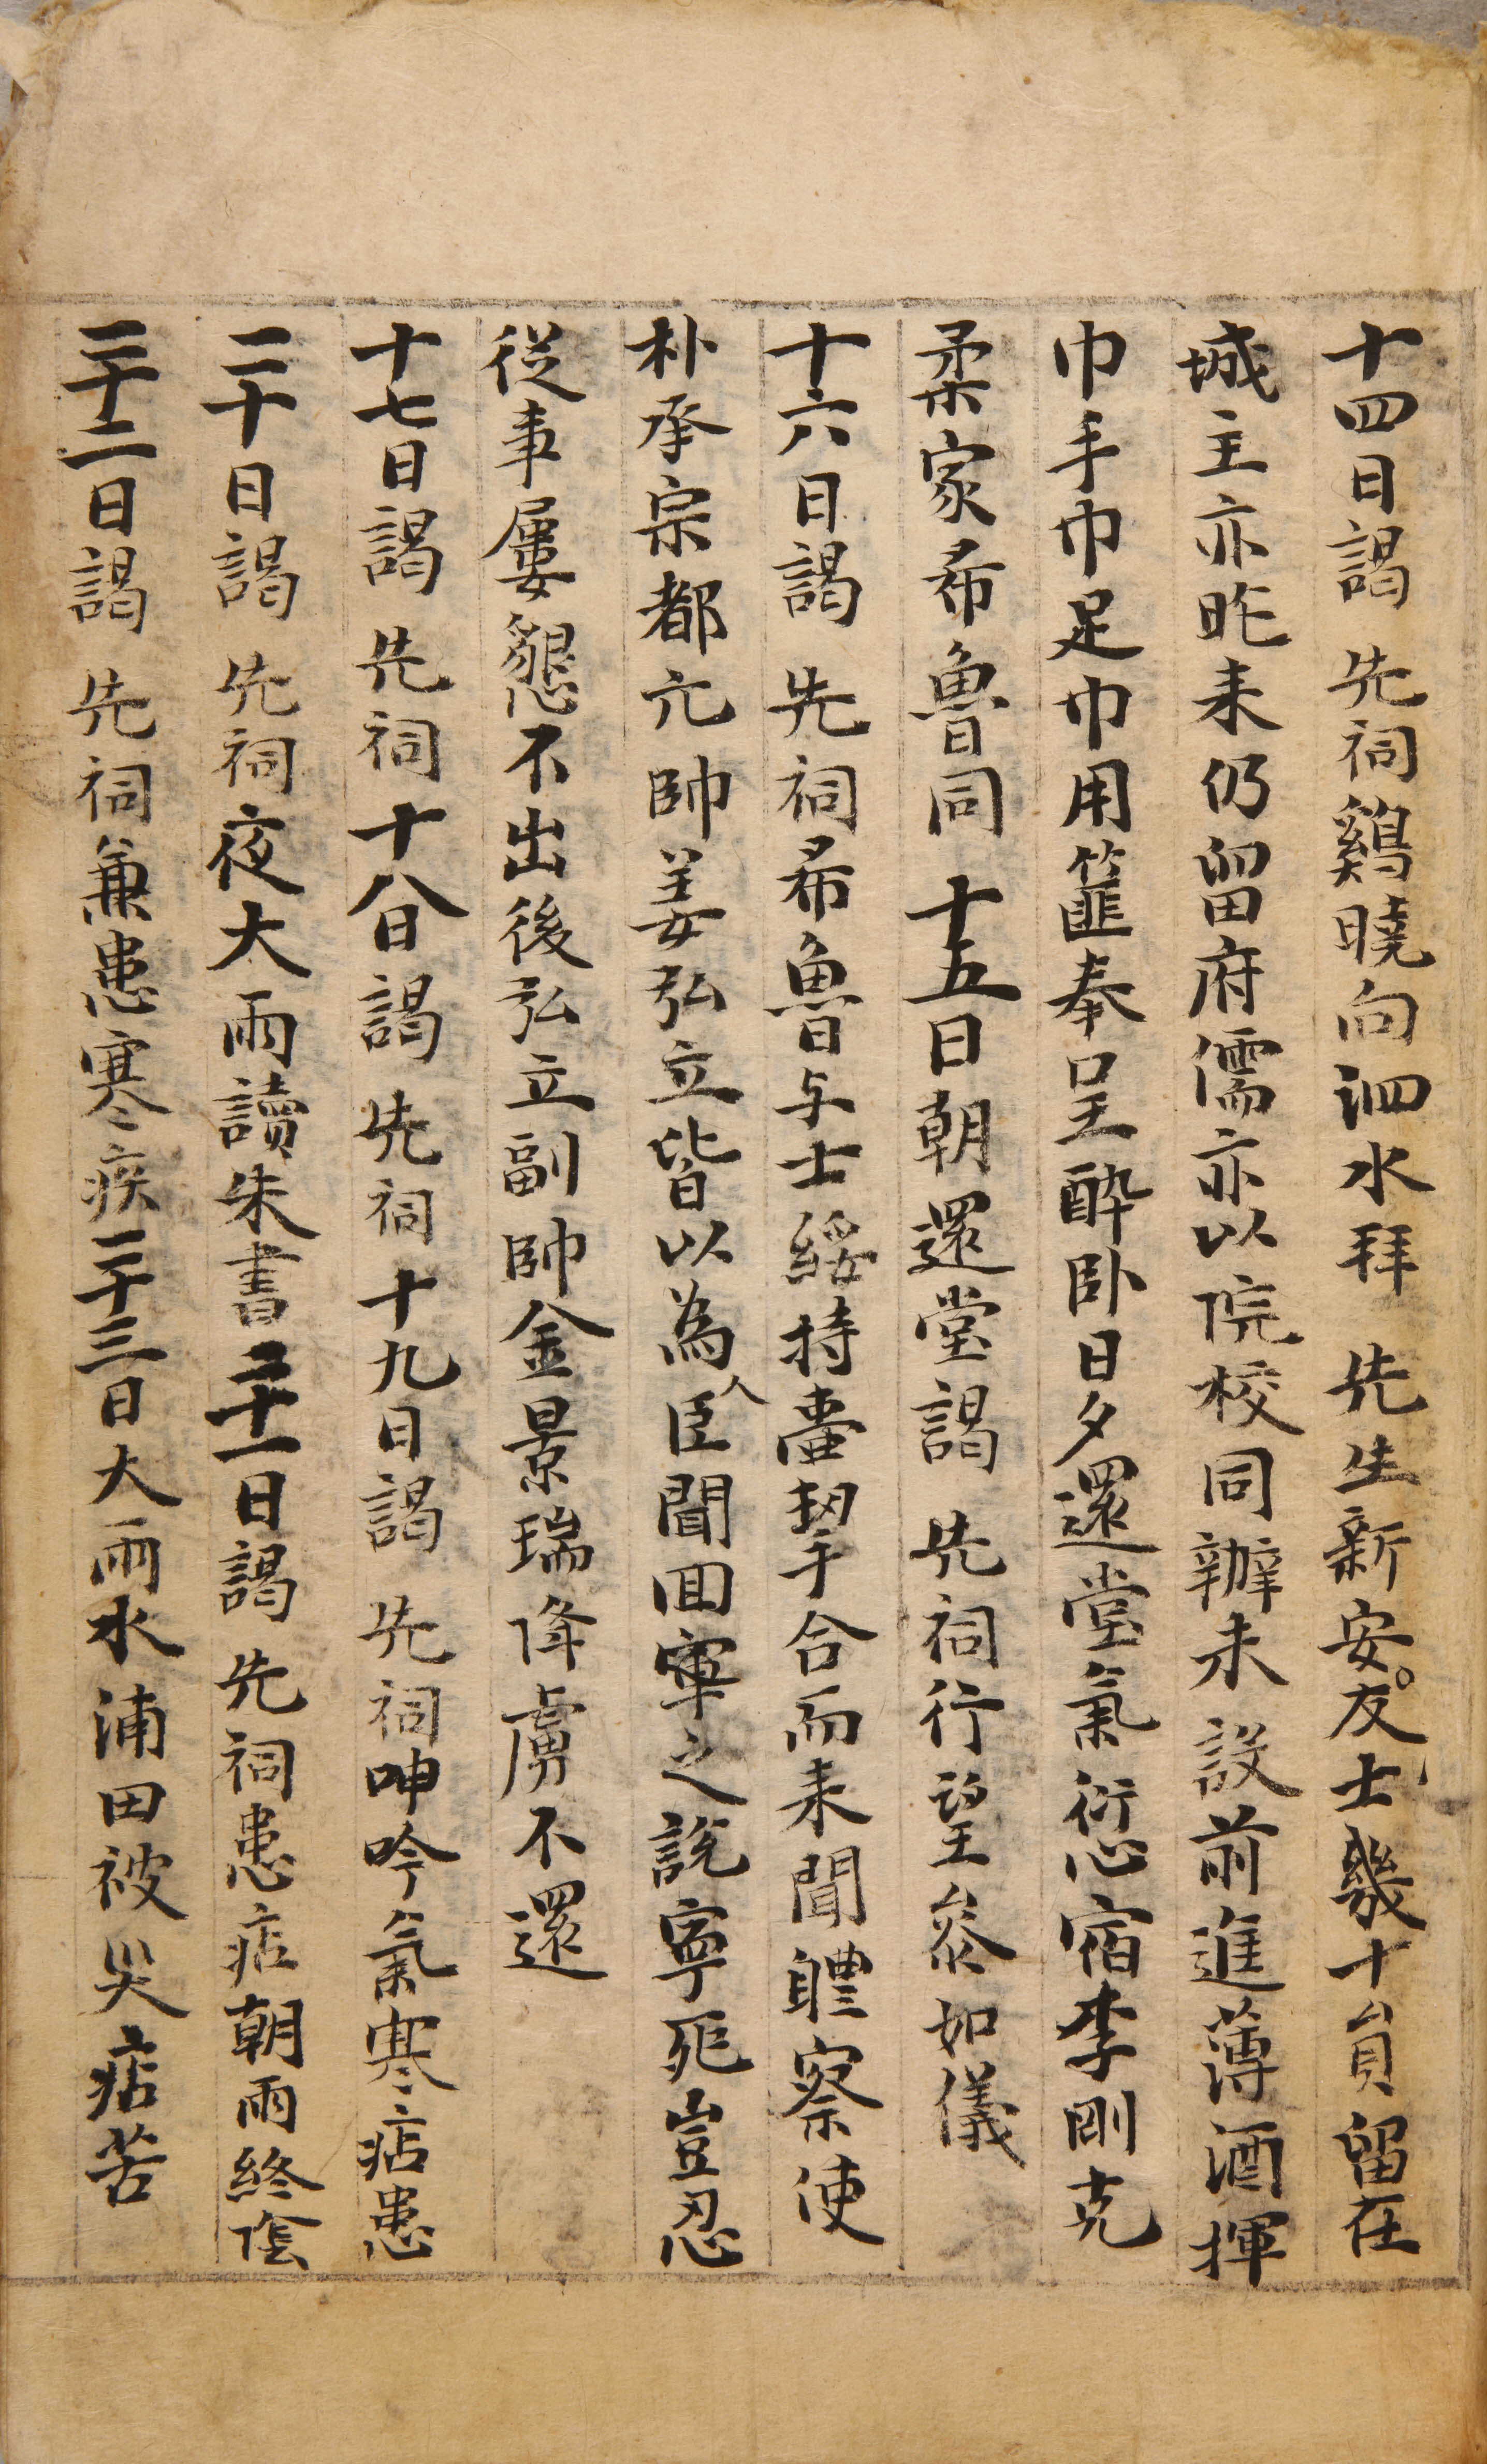 十四日謁 先祠鷄曉向泗水拜 先生新安友士幾十員留在
城主亦昨来仍留府儒亦以院校同辦未設前進薄酒揮
巾手巾足巾用篚奉呈酔卧日夕還堂氣愆宿李剛克
柔家希魯同 十五日朝還堂謁 先祠行望叅如儀
十六日謁 先祠希魯与士綏持壷挈合而来聞軆察使
朴承宗都元帥姜弘立皆以為人臣聞囬軍之說寧死豈忍
從事屢懇不出後弘立副帥金景瑞降虜不還
十七日謁 先祠十八日謁 先祠十九日謁 先祠呻吟氣寒痁患
二十日謁 先祠夜大雨讀朱書二十一日謁 先祠患痁朝雨終陰
二十二日謁 先祠兼患寒疾二十三日大雨水浦田被災痁苦